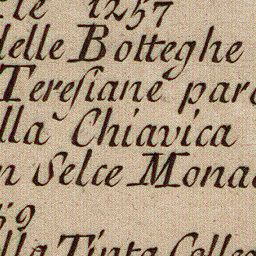 rle 1257
delle Botteghe
Teresiane par
lla Chiavica
n Selce Mona
59
lla Tinta Colle